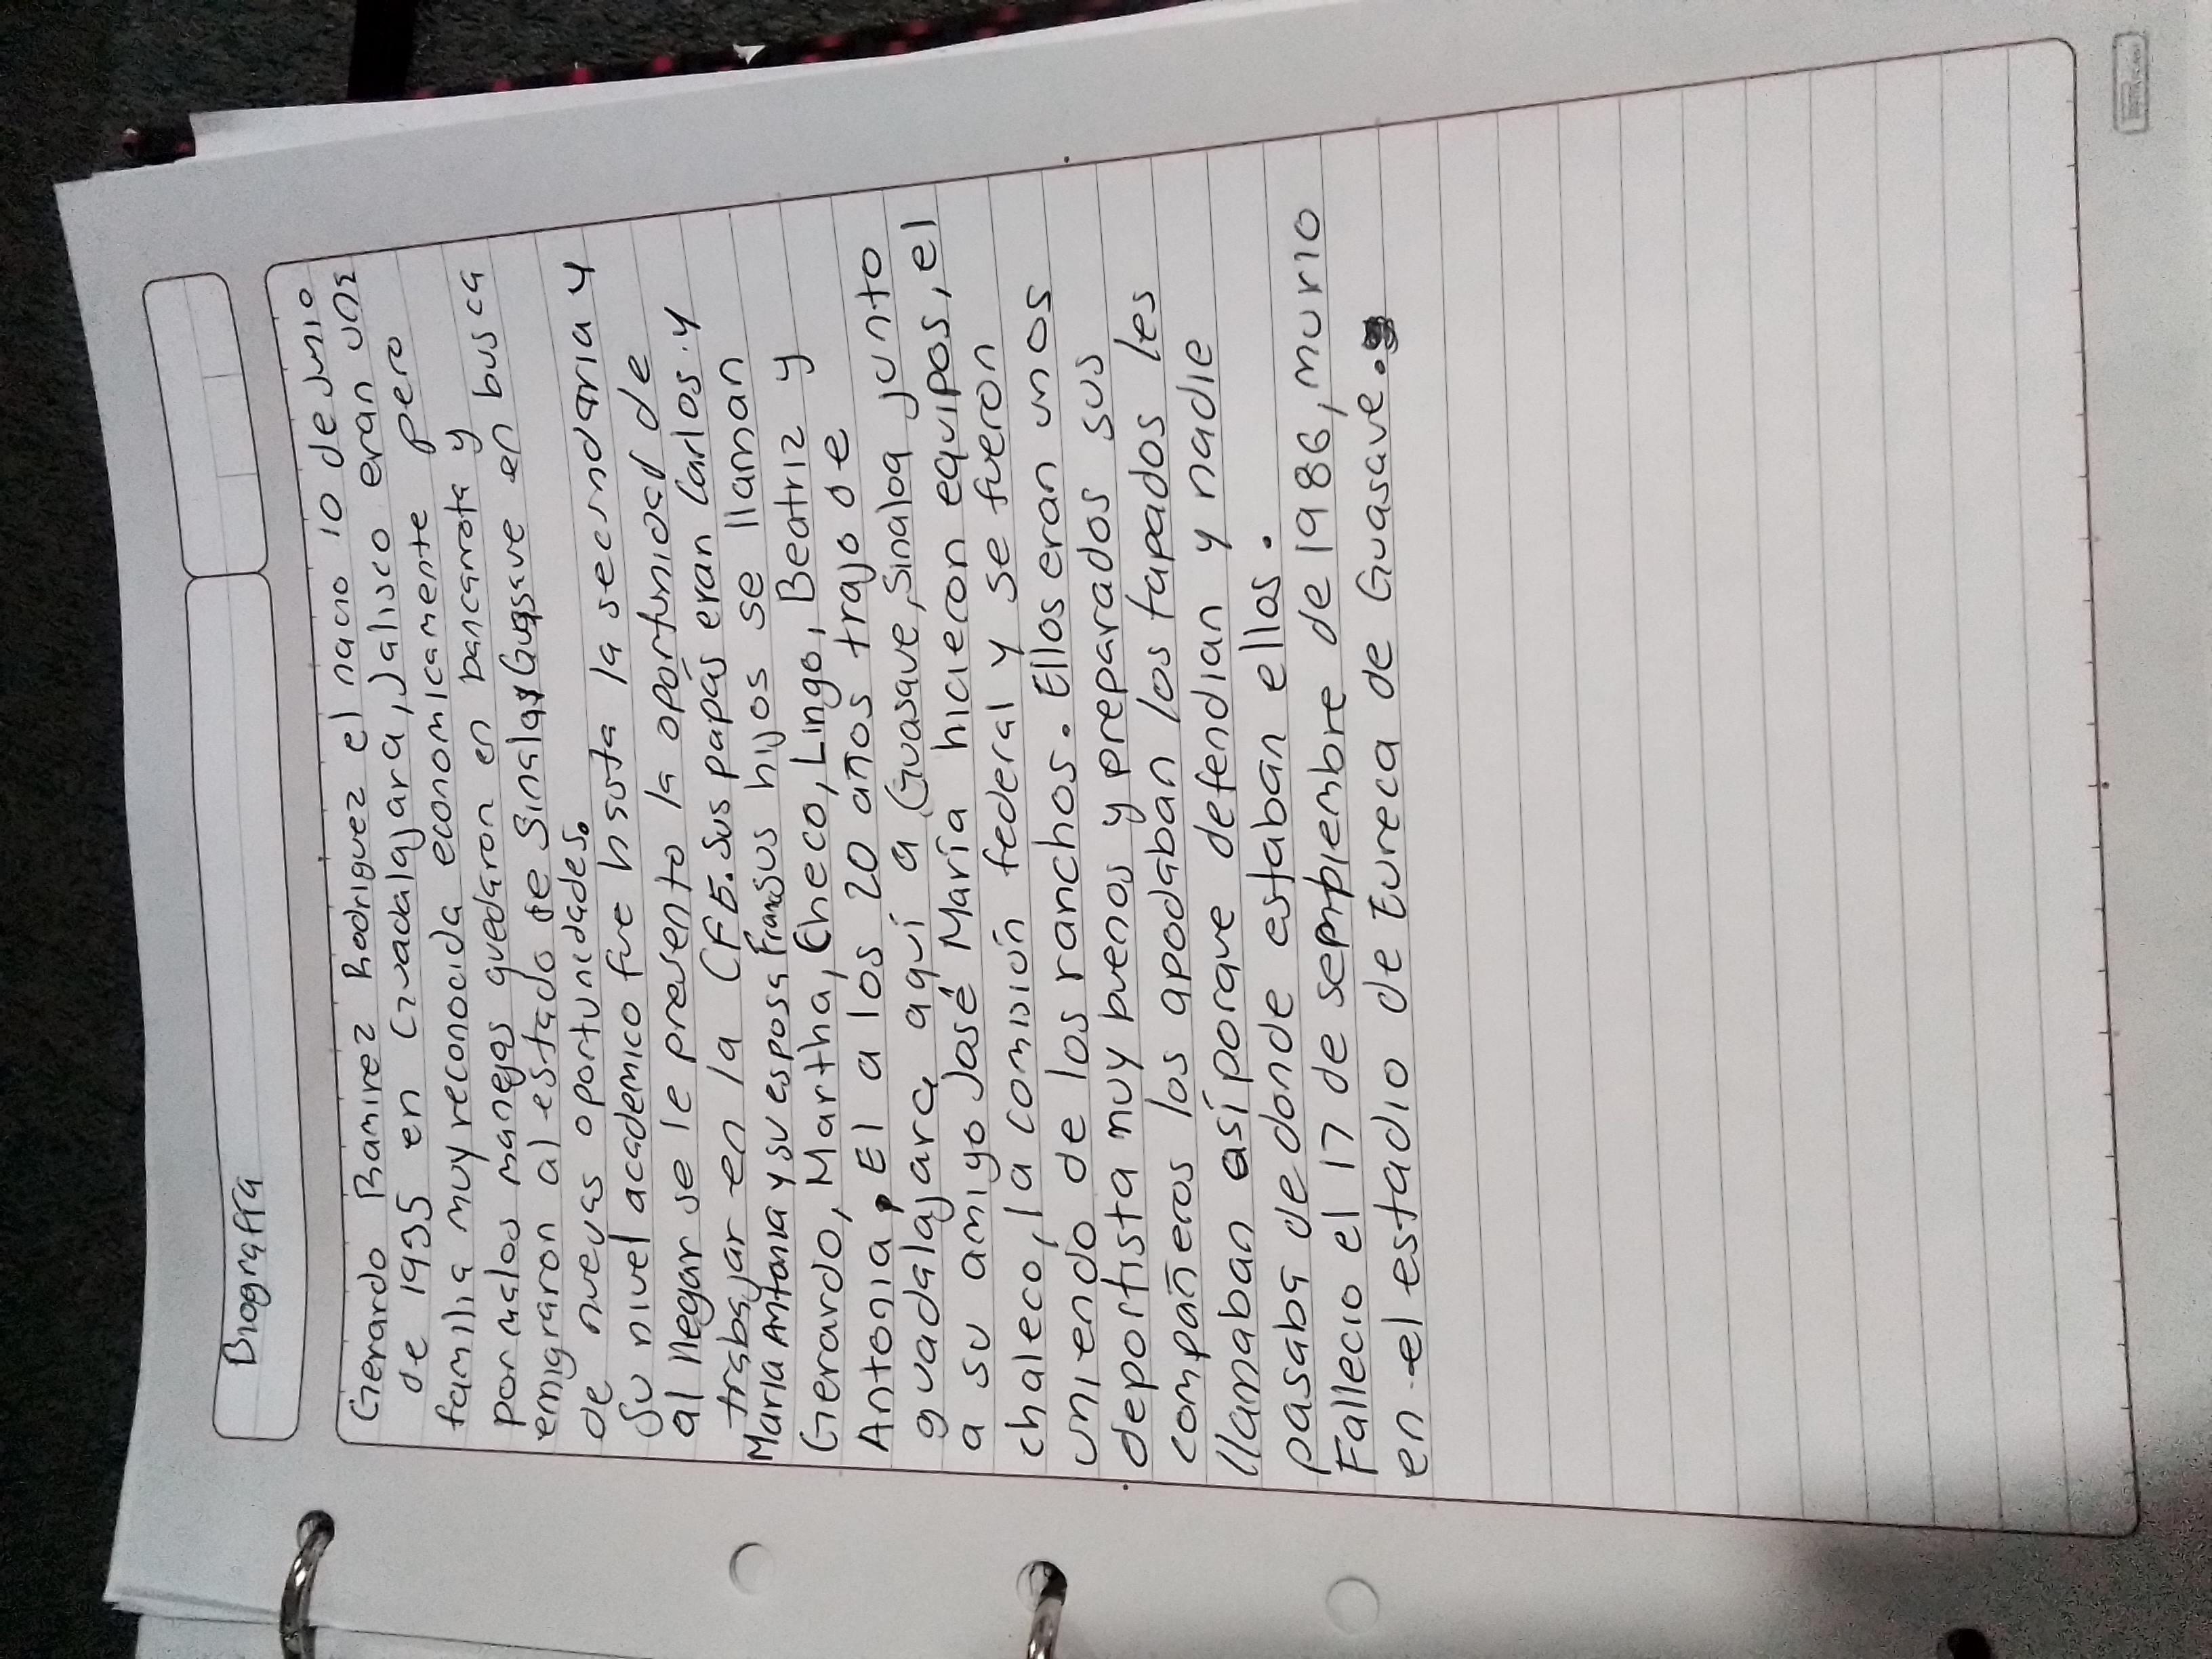 Biografía
Gerardo Ramirez Rodriguez el nacio 10 de Junio
de 1935 en Guadalajara, Jalisco eran una
familia muy reconocida economicamente pero
por malos manejos quedaron en bancarrota y
emigraron al estado de Sinaloa Guasave en busca
de nuevas oportunidades.
Su nivel academico fue hasta la secundaria y
al llegar se le presento la oportunidad de
trabajar en la CFE. Sus papás eran Carlos y
Maria Antonia y su esposa Fran sus hijos se llaman
Gerardo, Martha, Checo, Lingo, Beatriz y
Antonia, El a los 20 años trajo de
guadalajara aquí a Guasave, Sinaloa junto
a su amigo José María hicieron equipos, el
chaleco, la comisión federal y se fueron
uniendo de los ranchos. Ellos eran unos
deportista muy buenos y preparados sus
compañeros los apodaban los tapados les
llamaban así porque defendian y nadie
pasaba de donde estaban ellos.
Fallecio el 17 de sempiembre de 1986, murio
en el estadio de Eureca de Guasave.